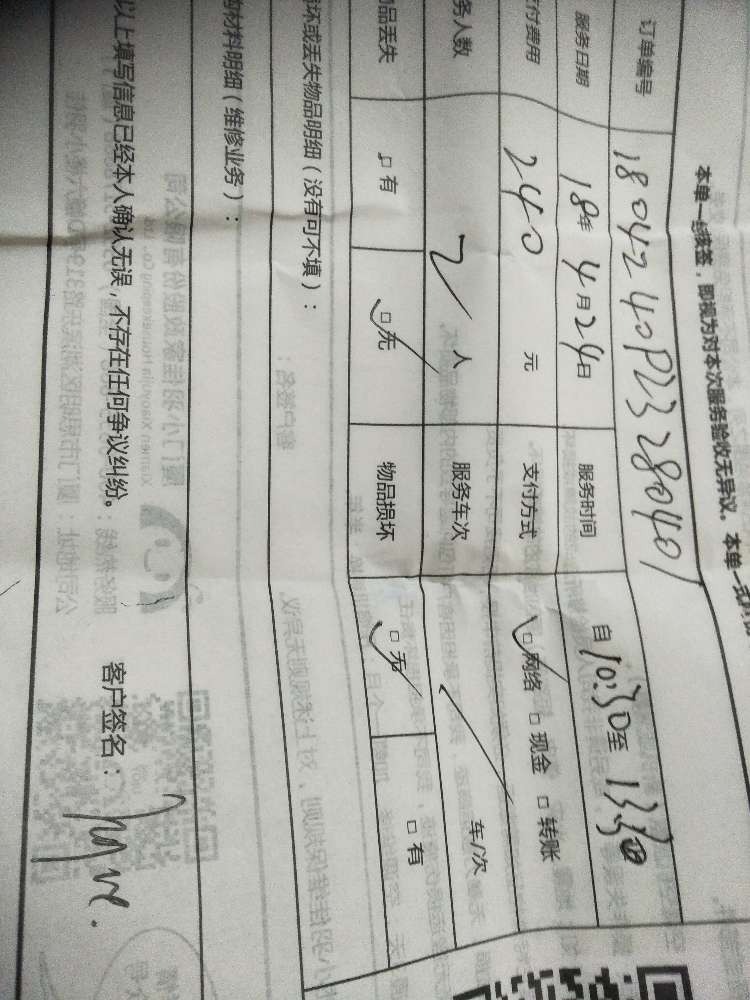 本单一经接签，即视为对本次服务验收无异议。本单一式
订单编号 180424OP23280401
服务日期 18年4月24日 服务时间 自10:30至13:30
支付费用 240 元 支付方式 网络 现金 转账
务人数 2人 服务车次 车/次
物品丢失 有 无 物品损坏 无 有
坏或丢失物品明细（没有可不填）：
购材料明细（维修业务）：
以上填写信息已经本人确认无误，不存在任何争议纠纷。 客户签名：